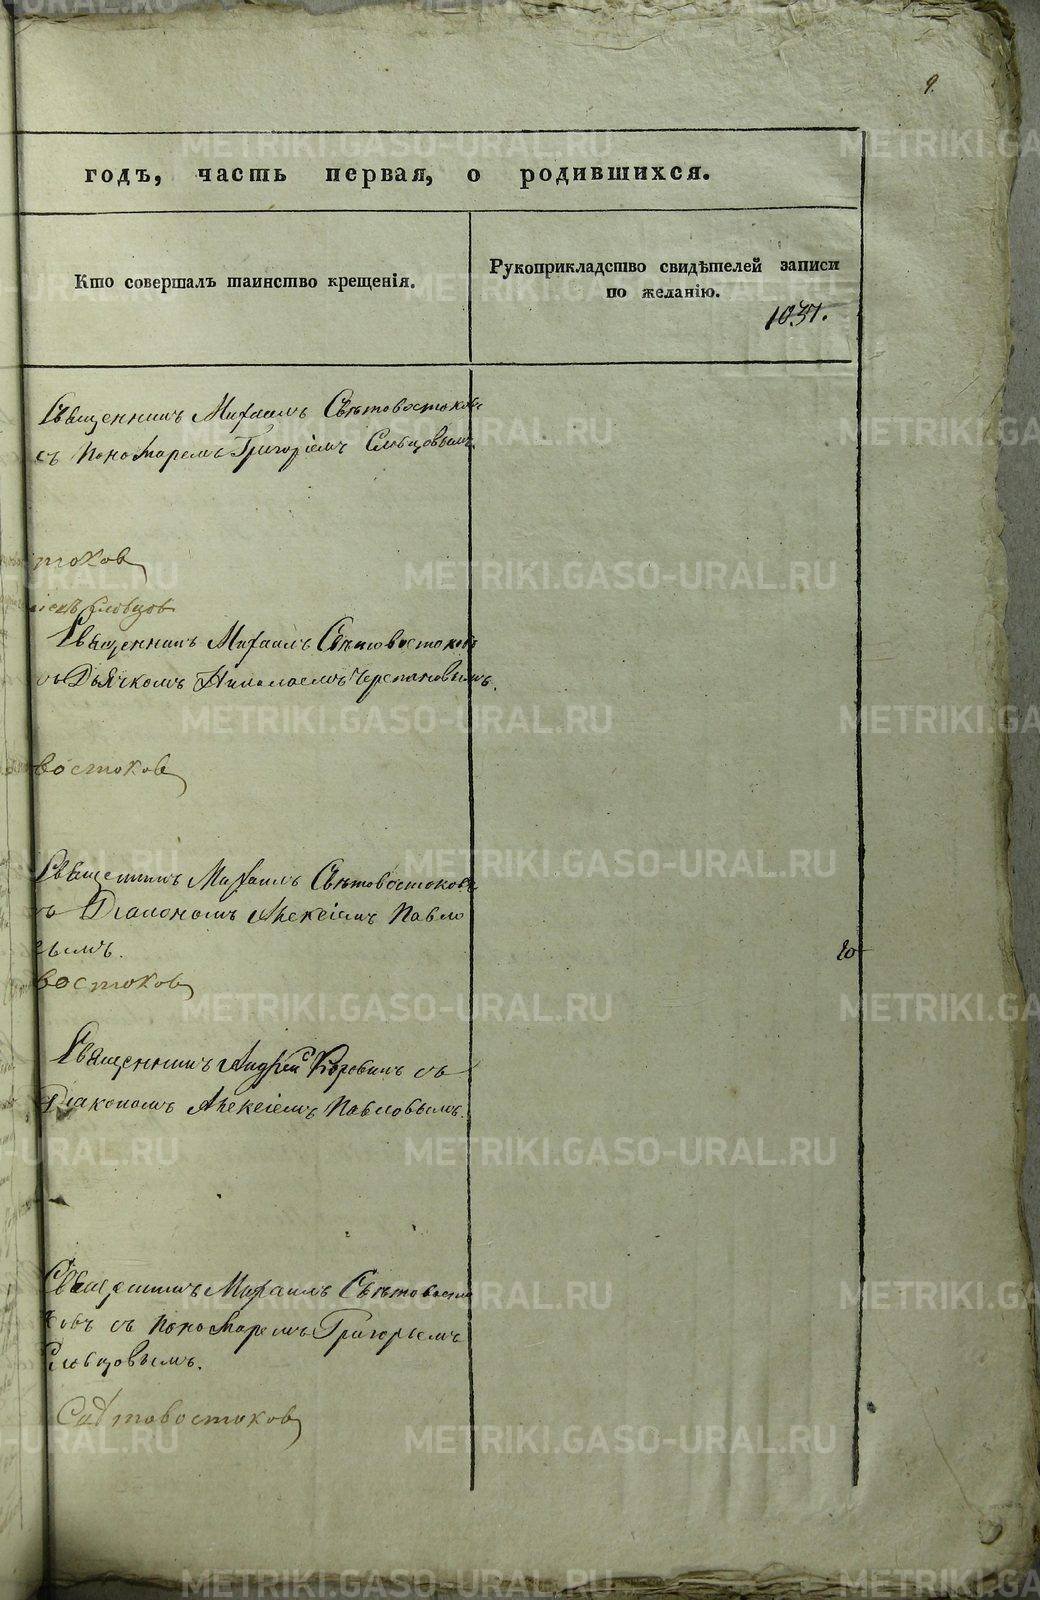 9.
годъ, часть первая, о родившихся.
Кто совершалъ таинство крещенія.
Рукоприкладство свидѣтелей записи
по желанію.
1037.
Священникъ Михаилъ Свѣтовостоковъ
съ Пономаремъ Григоріемъ Словцовымъ
токов
Словцов
Священникъ Михаилъ Свѣтовостоковъ
съ Дьячкомъ Николаемъ Черепановымъ.
востоков
Священникъ Михаилъ Свѣтовостоковъ
съ Діакономъ Алексіемъ Павло
вымъ.
востоков
Священникъ Андрей съ
Діакономъ Алексіемъ Павловымъ.
Священникъ Михаилъ Свѣтовосто
ковъ съ Пономаремъ Григорьемъ
Словцовымъ.
Свѣтовостоков
METRIKI.GASO-URAL.RU